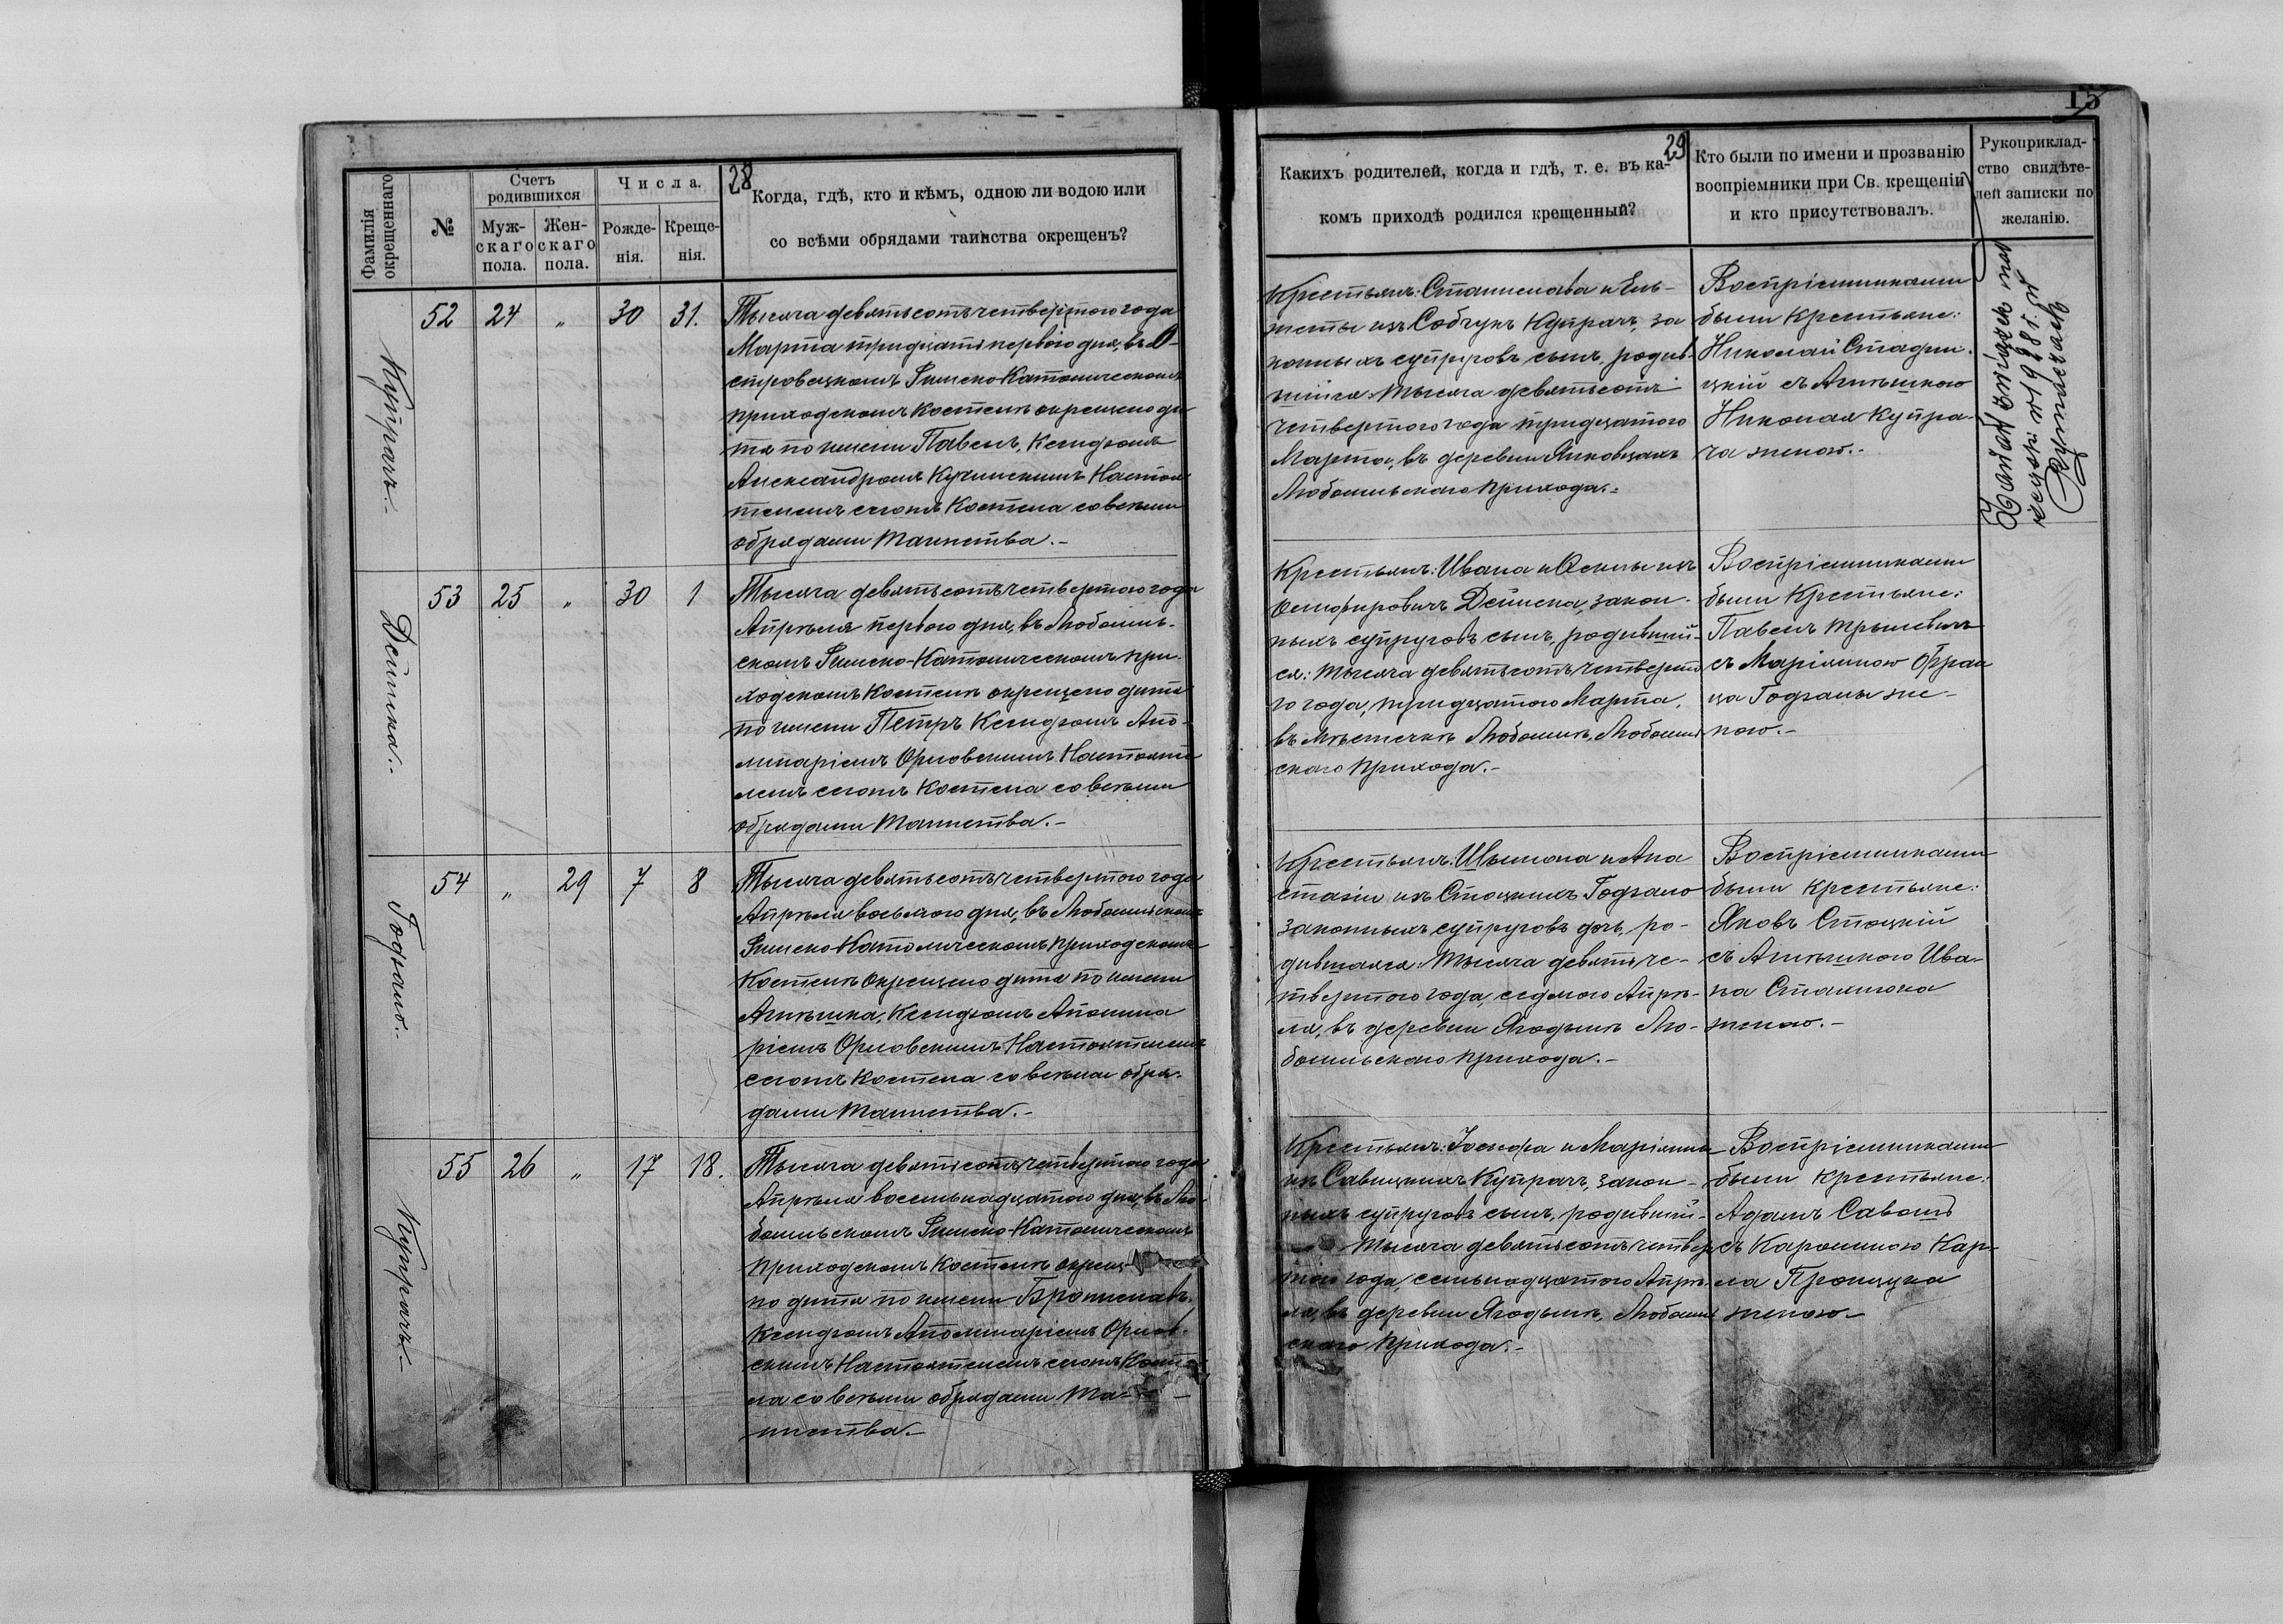 28
Фамилія
окрещеннаго
№
Счетъ
родившихся
Муж-
скаго
пола.
Жен-
скаго
пола.
Числа.
Рожде-
нія.
Креще-
нія.
Когда, гдѣ, кто и кѣмъ, одною ли водою или
со всѣми обрядами таинства окрещенъ?
Купрачъ.
52 24 „ 30 31.
Тысяча девятьсотъ четвертого года
Марта тридцать первого дня, въ О-
стровецкомъ Римско-Католическомъ
приходскомъ Костелѣ окрещено ди-
тя по имени Павелъ, Ксендзомъ
Александромъ Кучинскимъ Настоя
телемъ сегожъ Костела со всѣми
обрядами Таинства.-
Дейнека.-
53 25 „ 30 1
Тысяча девятьсотъ четвертого года
Апрѣля первого дня, въ Любашь-
скомъ Римско-Католическомъ при-
ходскомъ Костелѣ окрещено дитя
по имени Петръ Ксендзомъ Апо-
линаріемъ Орловскимъ Настояте
лемъ сегожъ Костела со всѣми
обрядами Таинства.-
Годзало.-
54 „ 29 7 8
Тысяча девятьсотъ четвертого года
Апрѣля восьмого дня, въ Любашьскомъ
Римско-Католическомъ приходскомъ
Костелѣ окрещено дитя по имени
Агнѣшка, Ксендзомъ Аполина
ріемъ Орловскимъ Настоятелемъ
сегожъ Костела со всѣми обря-
дами Таинства.-
Купрачъ.-
55 26 „ 17 18.
Тысяча девятьсотъ четвертого года
Апрѣля восемьнадцатого дня, въ Лю-
башьскомъ Римско-Католическомъ
приходскомъ Костелѣ окреще
но дитя по имени Брониславъ.
Ксендзомъ Аполинаріемъ Орлов-
скимъ Настоятелемъ сегожъ Косте
ла со всѣми обрядами Та-
инства.-
15
29
Какихъ родителей, когда и гдѣ, т. е. въ ка-
комъ приходѣ родился крещенный?
Кто были по имени и прозванію
воспріемники при Св. крещеніи
и кто присутствовалъ.
Рукоприклад-
ство свидѣте-
лей записки по
желанію.
Крестьянъ: Станислава и Ель-
жеты изъ Собчукъ Купрачъ, за
конныхъ супруговъ сынъ, родив-
шійся: Тысяча девятьсотъ
четвертого года тридцатого
Марта, въ деревни Янковцахъ
Любашьскаго прихода.-
Воспріемниками
были Крестьяне:
Николай Стадни-
цкій съ Агнѣшкою
Николая Купра-
ча женою.-
Крестьянъ: Ивана и
Дейнека, закон-
ныхъ супруговъ сынъ, родившій-
ся: Тысяча девятьсотъ четверто
го года, тридцатого Марта,
въ мѣстечкѣ Любашѣ, Любашь
скаго прихода.-
Воспріемниками
были Крестьяне:
Павелъ
съ Маріянною Фран
ца Годзалы же-
ною.-
Крестьянъ: Шымона и Ана
стазіи изъ Стоцкихъ Годзало
законныхъ супруговъ дочь, ро-
дившаяся: Тысяча девять че-
твертого года, седмого Апрѣ-
ля, въ деревни Ягодынѣ Лю-
башьскаго прихода.-
Воспріемниками
были крестьяне:
Яковъ Стоцкій
съ Агнѣшкою Ива-
на
женою.-
Крестьянъ: Іосифа и Маріянны
изъ Савицкихъ Купрачъ, закон-
ныхъ супруговъ сынъ, родившій-
Тысяча девятьсотъ четвер
того года, семьнадцатого Апрѣ-
ля, въ деревни Ягодынѣ, Любашь
скаго прихода.-
Воспріемниками
были Крестьяне:
Адамъ Савошъ
съ Каролиною Кар-
ла Процука
женою-